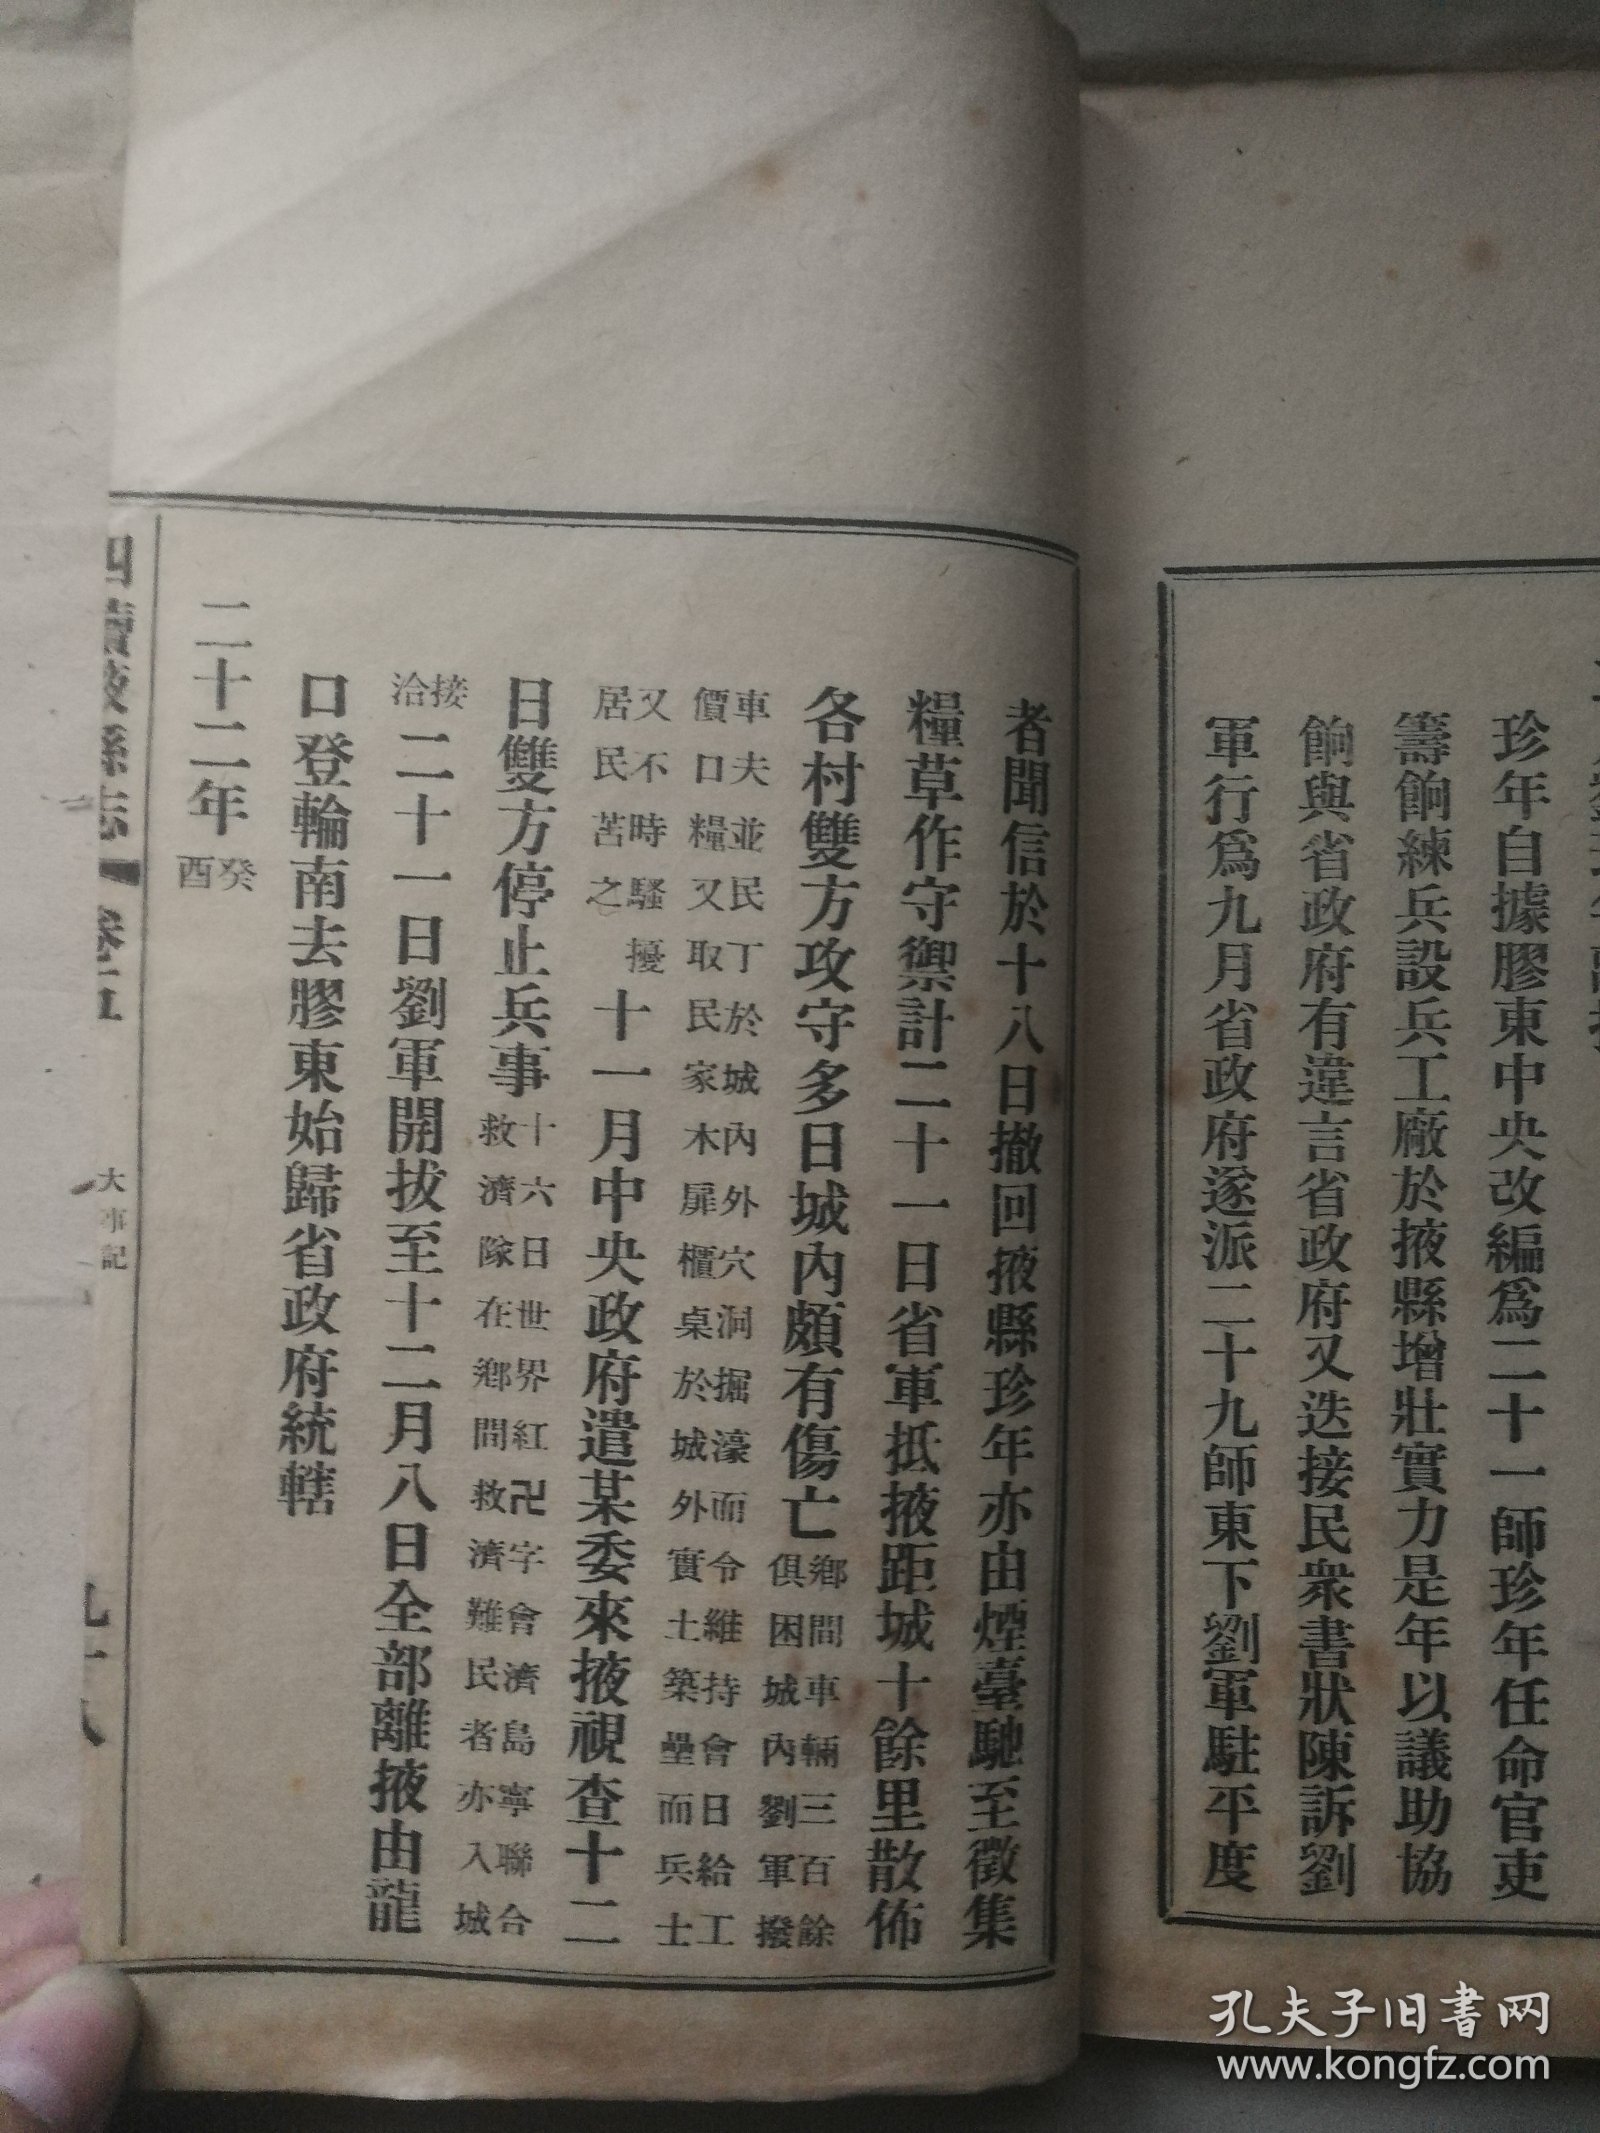 珍年自據膠東中央改編爲二十一師珍年任命官吏
籌餉練兵設兵工廠於掖縣增壯實力是年以議助協
餉與省政府有違言省政府又迭接民衆書狀陳訴劉
軍行爲九月省政府遂派二十九師東下劉軍駐平度
者聞信於十八日撤回掖縣珍年亦由煙臺馳至徵集
糧草作守禦計二十一日省軍抵掖距城十餘里散佈
各村雙方攻守多日城內頗有傷亡鄉間車輛三百餘
俱困城內劉軍撥
車夫並民丁於城內外穴洞掘濠而令維持會日給工
價口糧又取民家木扉櫃桌於城外實土築壘而兵士
又不時騷擾
居民苦之
十一月中央政府遣某委來掖視查十二
日雙方停止兵事十六日世界紅卍字會濟島寧聯合
救濟隊在鄉間救濟難民者亦入城
接
洽
二十一日劉軍開拔至十二月八日全部離掖由龍
口登輪南去膠東始歸省政府統轄
二十二年癸
酉
四續掖縣志 卷五 大事記 九十八
孔夫子旧书网
www.kongfz.com